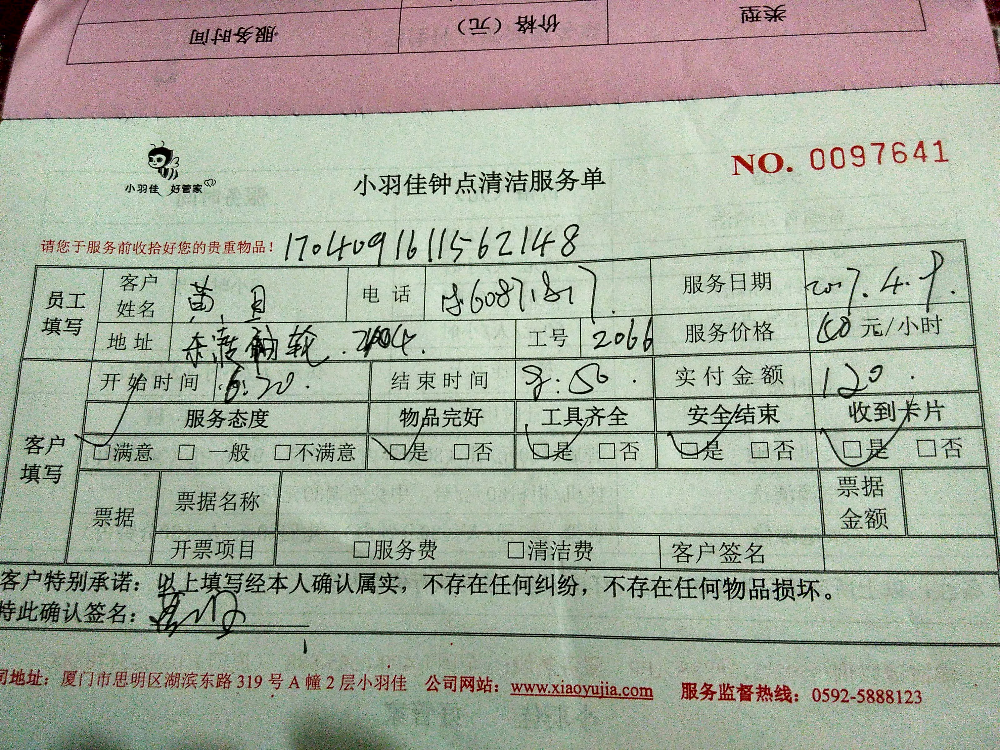 服务时间 价格（元） 类型
小羽佳 好管家
小羽佳钟点清洁服务单
NO. 0097641
请您于服务前收拾好您的贵重物品！ 1704091611562148
员工填写 客户姓名 电话 服务日期 2017.4.9.
地址 2404. 工号 2066 服务价格 元/小时
客户填写 开始时间 结束时间 8:50. 实付金额 120.
服务态度 物品完好 工具齐全 安全结束 收到卡片
□满意 □一般 □不满意 □是 □否 □是 □否 □是 □否 □是 □否
票据 票据名称 票据金额
开票项目 □服务费 □清洁费 客户签名
客户特别承诺：以上填写经本人确认属实，不存在任何纠纷，不存在任何物品损坏。
特此确认签名：
司地址：厦门市思明区湖滨东路 319 号 A 幢 2 层小羽佳 公司网站：www.xiaoyujia.com 服务监督热线：0592-5888123